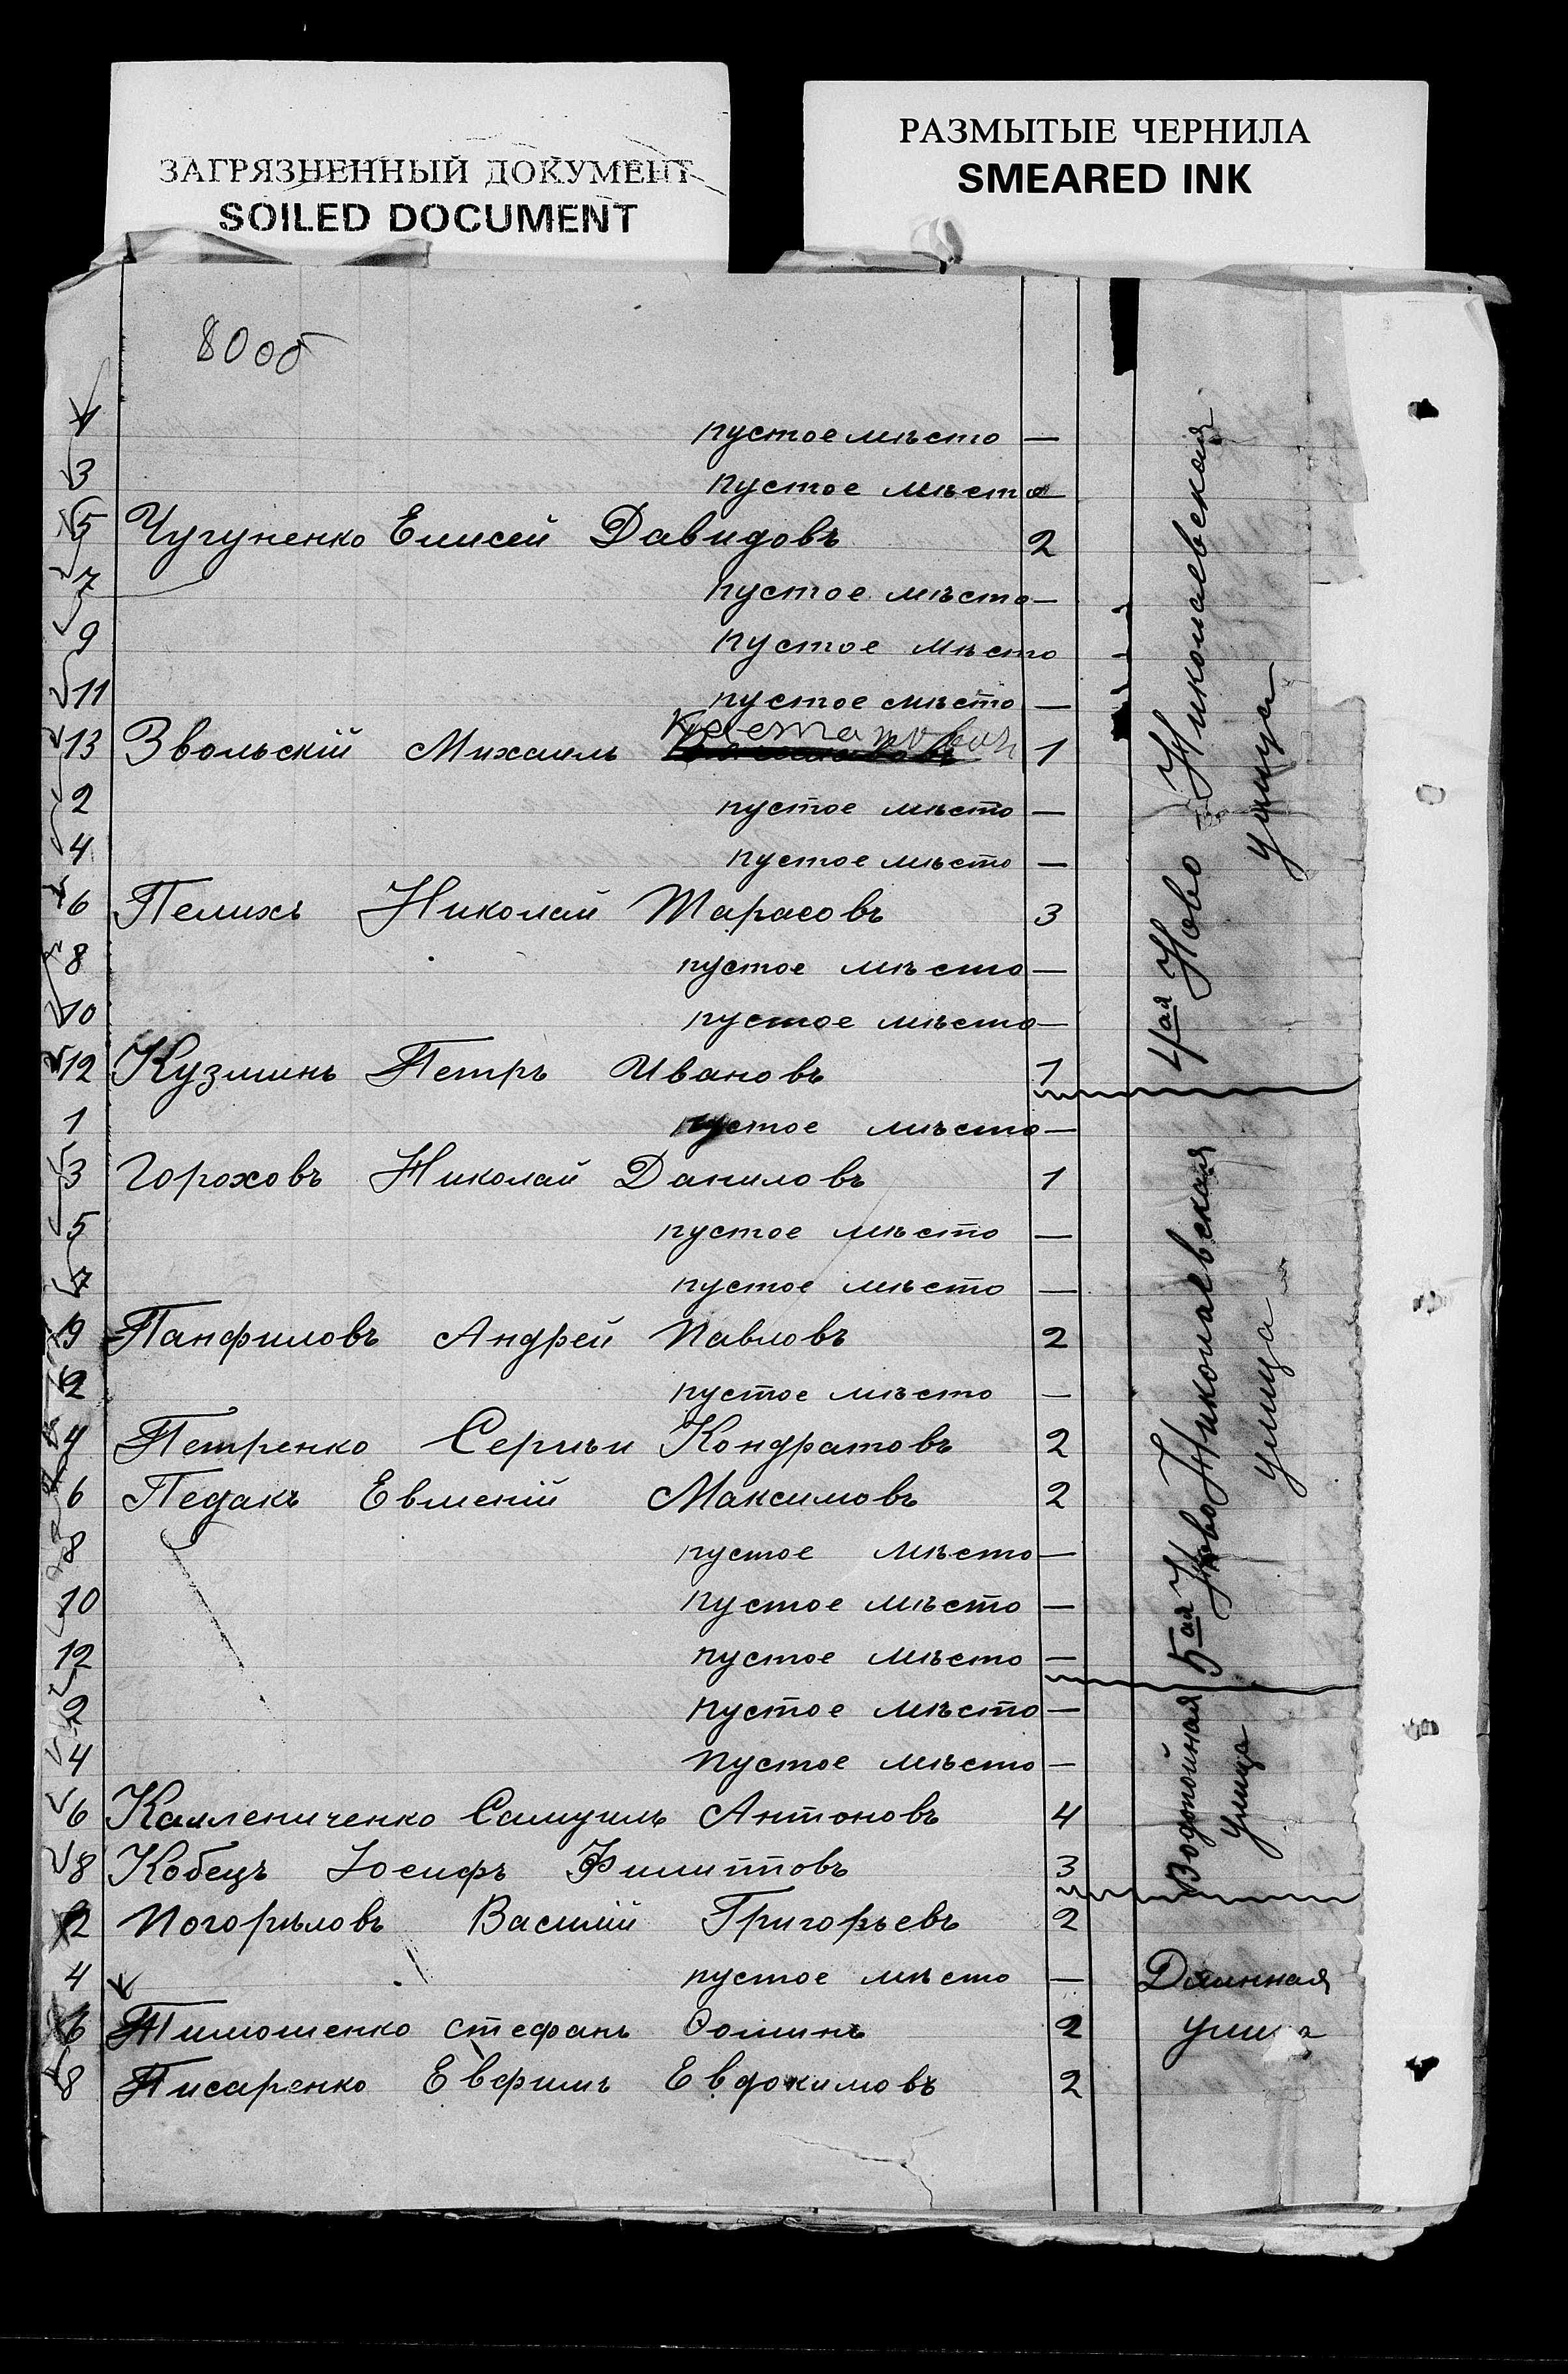 ЗАГРЯЗНЕННЫЙ ДОКУМЕНТ
SOILED DOCUMENT
РАЗМЫТЫЕ ЧЕРНИЛА
SMEARED INK
80об
1 пустое мѣсто —
3 пустое мѣсто —
5 Чугуненко Елисей Давидовъ 2
7 пустое мѣсто —
9 пустое мѣсто
11 пустое мѣсто —
13 Звольскій Михаилъ 1
2 пустое мѣсто —
4 пустое мѣсто —
6 Пелихъ Николай Тарасовъ 3
8 пустое мѣсто —
10 пустое мѣсто —
12 Кузминъ Петръ Ивановъ 1
4ая Ново Николаевская
улица
1 пустое мѣсто —
3 Гороховъ Николай Даниловъ 1
5 пустое мѣсто —
7 пустое мѣсто —
9 Панфиловъ Андрей Павловъ 2
2 пустое мѣсто —
4 Петренко Сергѣй Кондратовъ 2
6 Педакъ Евменій Максимовъ 2
8 пустое мѣсто —
10 пустое мѣсто —
12 пустое мѣсто —
5ая Ново Николаевская
улица
2 пустое мѣсто —
4 пустое мѣсто —
6 Каллениченко Самуилъ Антоновъ 4
8 Кобецъ Іосифъ Филипповъ 3
Водопойная
улица
2 Погорѣловъ Василій Григорьевъ 2
4 пустое мѣсто —
6 Тимошенко Стефанъ Ѳоминъ 2
8 Писаренко Евфимъ Евдокимовъ 2
Длинная
улица